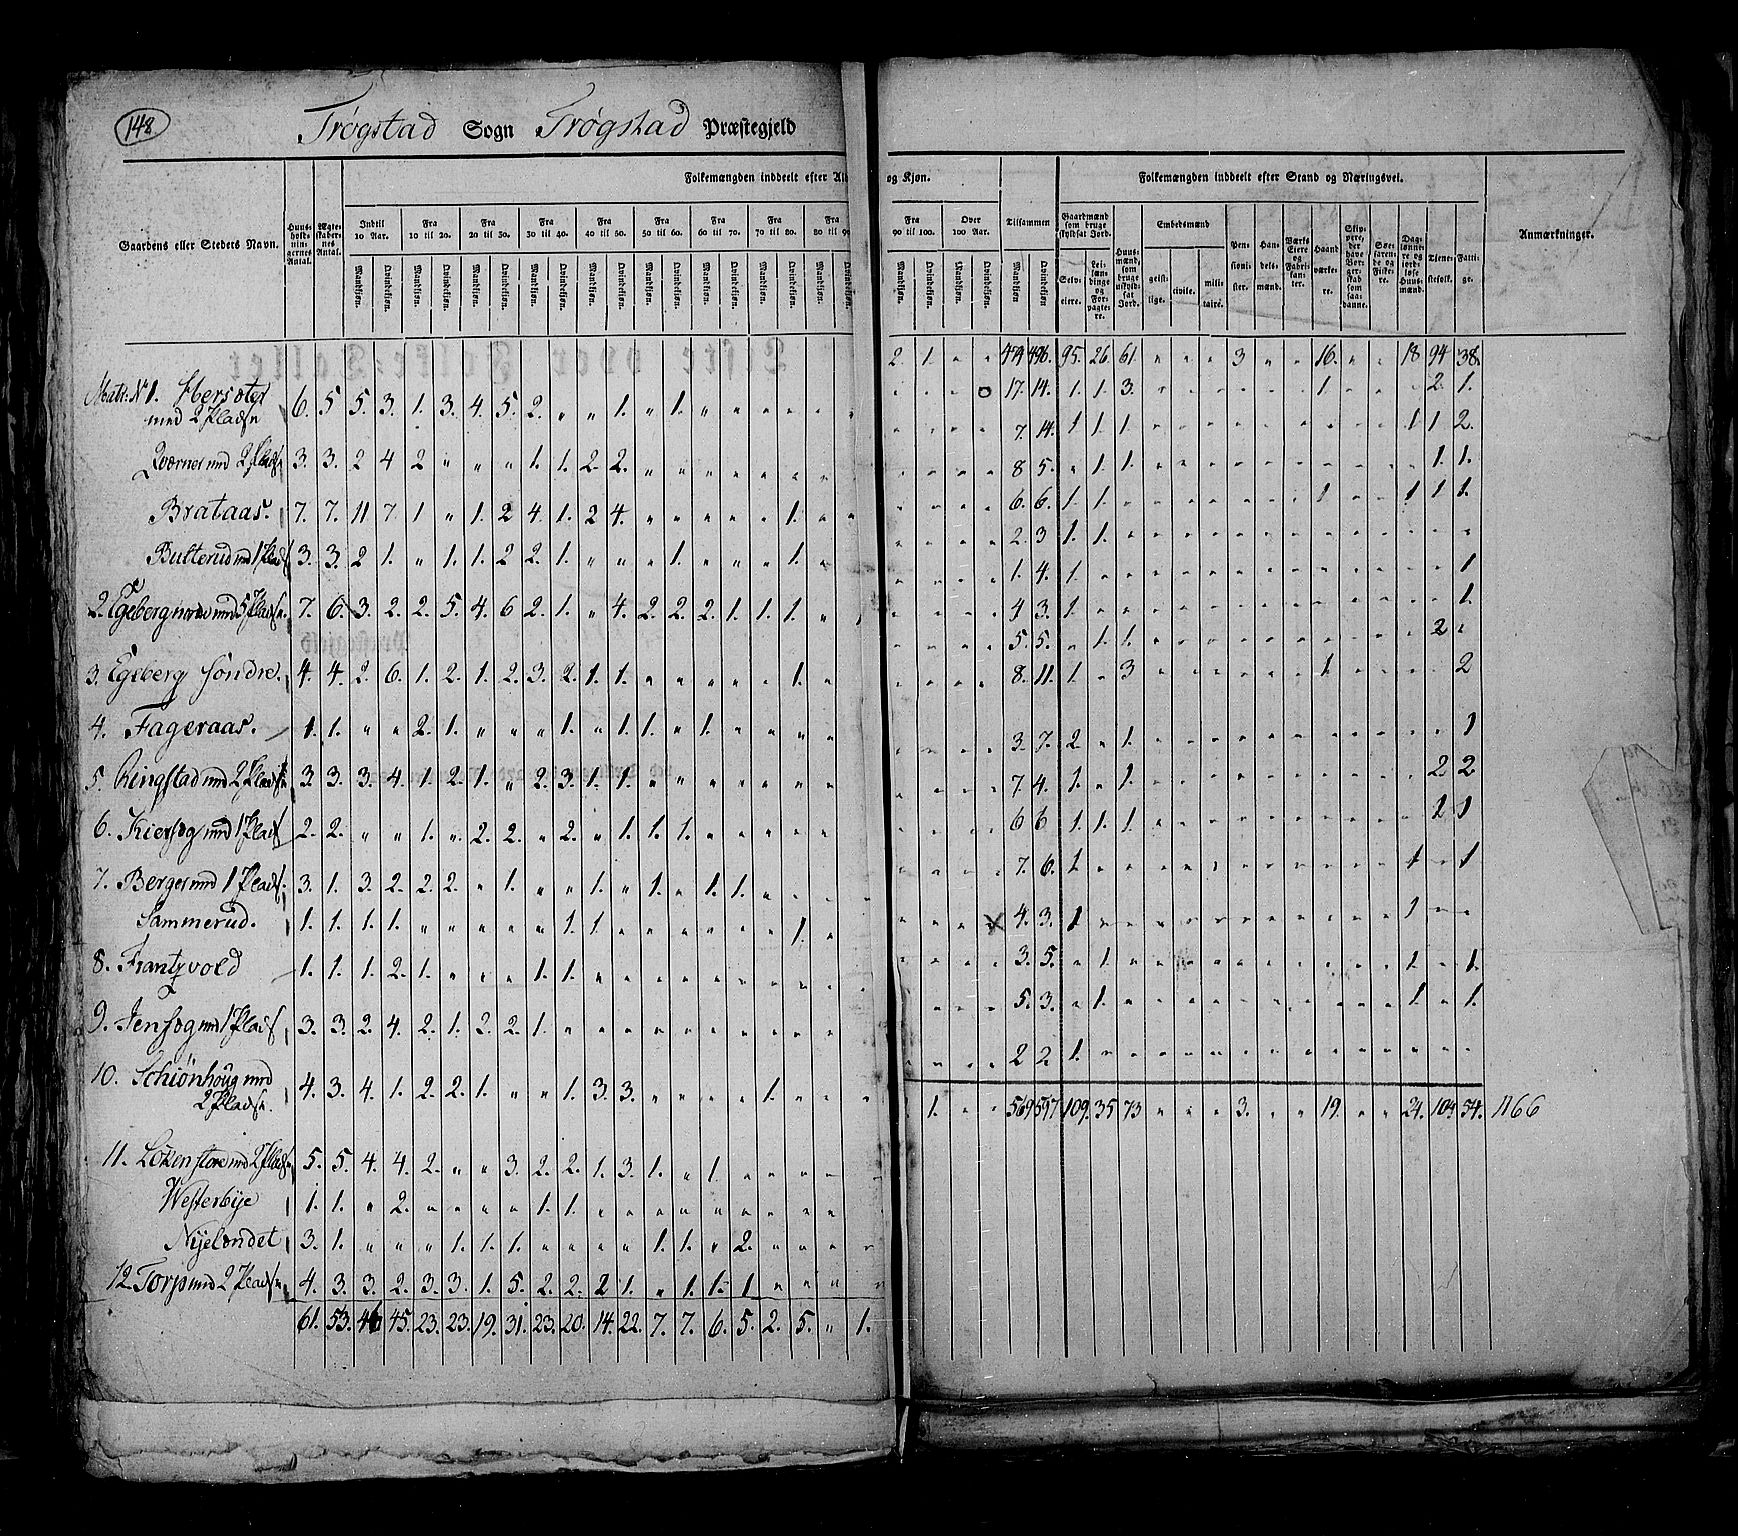 148
Trøgstad Sogn Trøgstad Præstegjeld
Folkemængden inddeelt efter Al og Kjøn.
Folkemængden inddeelt efter Stand og Næringsvei.
Gaardens eller Stedets Navn.
Huus-holdnin-gernes Antal.
Ægte-skaber-nes Antal.
Indtil 10 Aar.
Fra 10 til 20.
Fra 20 til 30.
Fra 30 til 40.
Fra 40 til 50.
Fra 50 til 60.
Fra 60 til 70.
Fra 70 til 80.
Fra 80 til 90
Fra 90 til 100.
Over 100 Aar.
Tilsammen
Mandkjøn. Qvindekjøn.
Embedsmænd
geist-lige.
civile.
mili-taire.
Pen-sioni-ster.
Han-dels-mænd.
Værks Eiere og Fabri-kan-ter.
Haand-værke-re.
Tjene-stefolk.
Fatti-ge.
Anmærkninger.
2. 1. " " 479 496. 95. 26. 61. " " " 3 " " 16. " " 18 94 38.
Matr: N 1. Hersæter
med 2 Pladse 6. 5 5. 3. 1. 3. 4. 5. 2. " " 1. " 1. "
17. 14. 1. 1. 3. 1. 2. 1.
Qværner md 2 Pladse 3. 3. 2 4 2 " " " 1. 1. 2. 2.
7. 14. 1 1. 1 1 1 2.
Brataas. 7. 7. 11 7. 1 " 1. 2 4. 1. 2 4. " " " " " 1.
8 5. " 1. 1. 1. 1.
Butterud md 1 Plads 3. 3. 2 1. " 1. 1. 2 2. 1. " " " 1. " " " 1.
6. 6. 1. 1. 1 1 1 1.
2. Egeberg nordre md 5 Pladse. 7. 6. 3. 2. 2. 5. 4. 6 2. 1. " 4. 2. 2. 2. 1. 1. 1.
2. 3 1. 1.
1. 4. 1. 1
4 3. 1. 1.
3. Egeberg Søndre. 4. 4. 2. 6. 1. 2. 1. 2. 3. 2. 1. 1. 1.
5. 5. " 1. 1. 2
8. 11. 1. " 3 1 2
4. Fageraas. 1. 1. " " 2. 1. " " " 1. " 1. 1. " 1.
3. 7. 2. " 1. 1
5. Ringstad md 2 Pladse 3. 3. 3. 4. 1. 2. 1. " 2. 3. 1. 1.
7. 4. 1. " 1. 2 2
6. Kiersøg md 1 Plads 2. 2. " " 1. " 2. 2. " 2. " 1. 1. 1.
6 6 1. 1. 1. 2 1
7. Berger md 1 Plads. 3. 1. 3. 2. 2. 2. " 1. " " 1. " 1. " 1. 1.
7. 6. 1 1 " 1
Sammerud. 1. 1. 1. 1. " " " " " 1. 1. 1.
X 4. 3. 1 1
8. Frantzvold 1. 1. 1. 2. 1. " " " 1. 1.
3. 5. " 1 1 " 1.
9. Jensøg md 1 Plads 3. 3. 2. 4. 2. 1. 2. 2. 1.
5. 3. " 1. 1 " 1.
10. Schiønhoug med
2 Pladse. 4. 3. 4. 1. 2. 2. 1. " " 1. 3. 3. " " " " 1.
2 2 1.
1. " " 569 597 109. 35 73 " " " 3. " " 19. " " 21. 104. 54. 1166
11. Løken store md 2 Pladse 5. 5. 4. 4. 2. " " 3. 2. 2. 1. 3. 1. " 1.
Westerbye 1. 1. " 2. " " " " 1. 1.
Nyelændet 3. 1. " " " 1. 1. 1. " " " " 1. 1. " 2.
12 Torp md 2 Pladse 4. 3. 3. 2. 3. 3. 1. 5. 2. 2. 2 1. " 1. 1. 1
61. 53. 46 45. 23. 23. 19. 31. 23. 20. 14. 22. 7. 7. 6. 5. 2. 5. " 1.